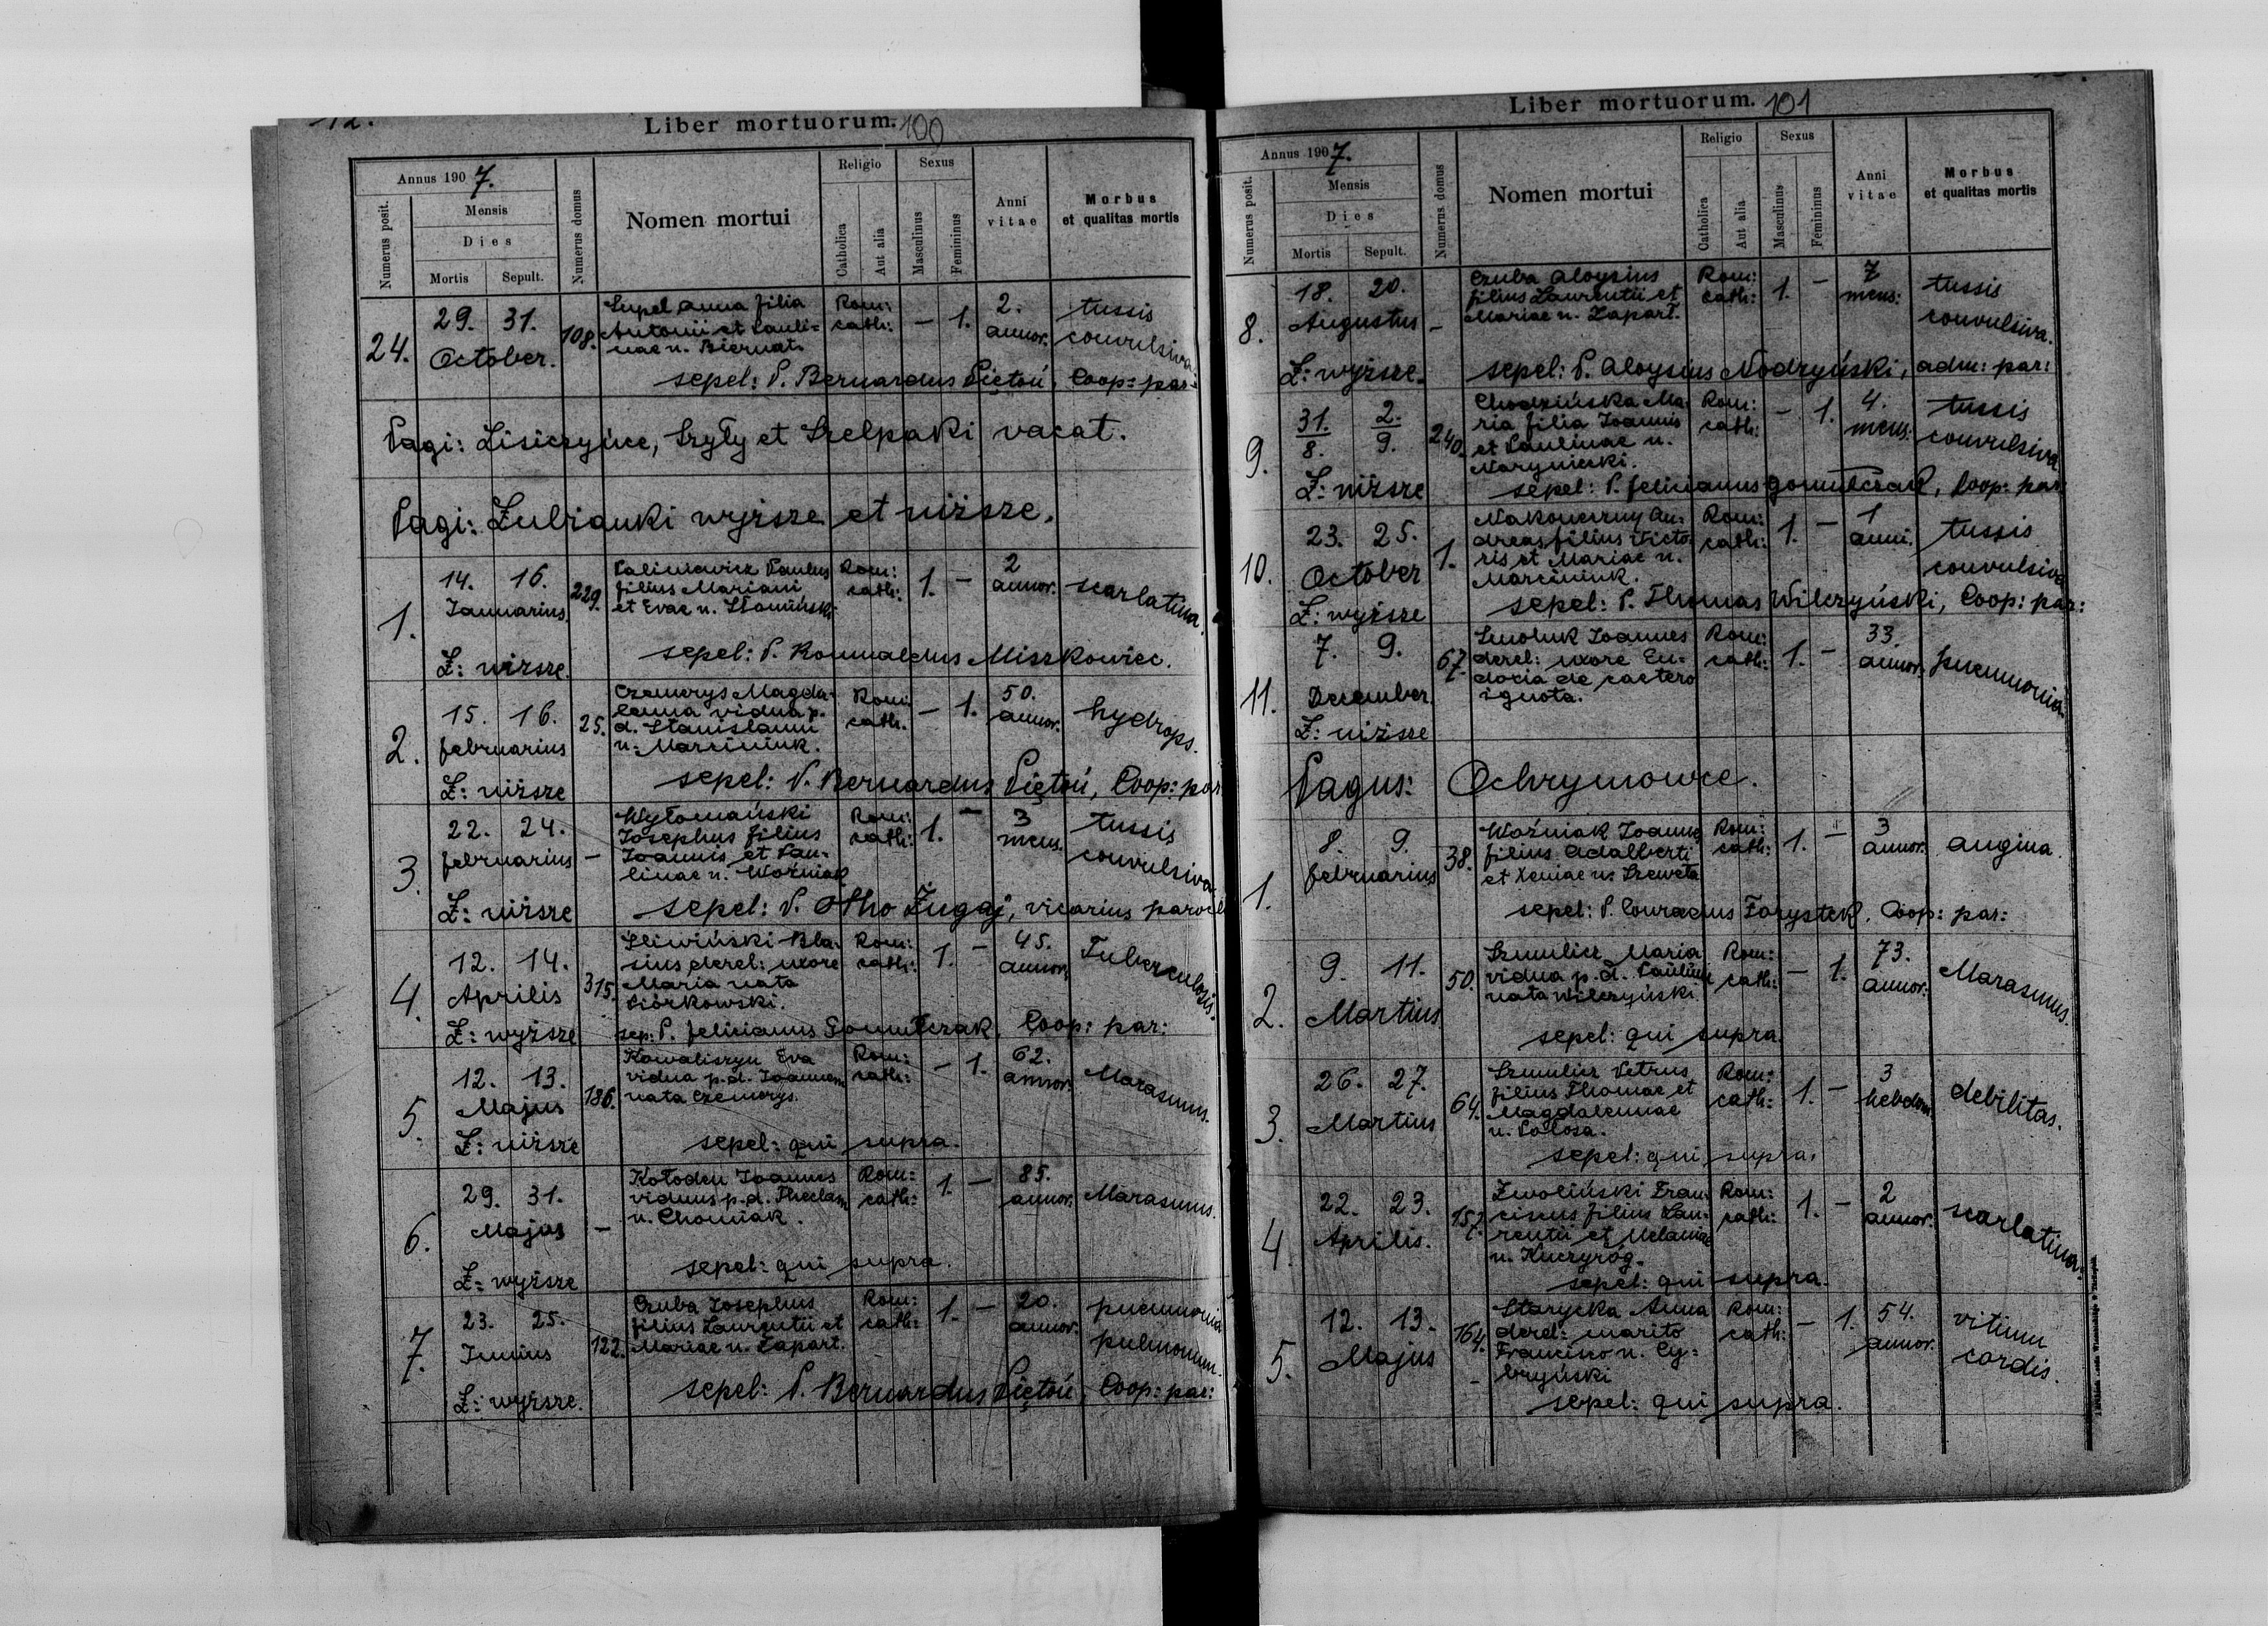 12.
Liber mortuorum. 100
Annus 1907.
Numerus posit.
Mensis
Dies
Mortis
Sepult.
Numerus domus
Nomen mortui
Religio
Catholica
Aut alia
Sexus
Masculinus
Femininus
Anni vitae
Morbus
et qualitas mortis
24.
29. 31.
October.
108.
Anna filia
Antonii et Pauli=
nae n. Biernat.
Rom:
cath:
– 1.
2.
annor.
tussis
convulsiva.
sepel: P. Bernardus Piętoń, Coop: par:
Pagi: Lisiczyńce, Szyły et Szelpaki vacat.
Pagi: Łubianki wyższe et niższe.
1.
14. 16.
Januarius
Ł: niższe.
229.
Paulus
filius Mariani
et Evae n. Słomiński
Rom:
cath:
1. –
2
annor.
scarlatina.
sepel: P. Romualdus Miszkowiec.
2.
15. 16.
februarius
Ł: niższe
25.
Czemerys Magda-
lenna vidua p.
d. Stanislaum
n. Marciniuk.
Rom:
cath.
– 1.
50.
annor.
hydrops.
sepel: P. Bernardus Piętoń, Coop: par:
3.
22. 24.
februarius
Ł: niższe
–
Wyłomański
Josephus filius
Joannis et Pau-
linae n. Woźniak
Rom:
cath:
1. –
3
mens.
tussis
convulsiva
sepel: P. Otho Żugaj, vicarius
4.
12. 14.
Aprilis
Ł: wyższe
315.
Śliwiński Bla-
sius derel: uxore
Maria nata
Piórkowski.
Rom:
cath:
1. –
45.
annor.
Tuberculosis.
sep: P. felicianus Gomułczak, Coop: par:
5.
12. 13.
Majus
Ł: niższe
186.
Kowaliszyn Eva
vidua p.d. Joannem
nata Czemerys.
Rom:
cath:
– 1.
62.
annor.
Marasmus.
sepel: qui supra.
6.
29. 31.
Majus
Ł: wyższe
–
Kołoden Joannes
viduus p.d. Theclam
n. Chomiak.
Rom:
cath:
1. –
85.
annor.
Marasmus.
sepel: qui supra.
7.
23. 25.
Junius
Ł: wyższe.
122.
Czuba Josephus
filius Laurentii et
Mariae n. Łapart.
Rom:
cath:
1. –
20.
annor.
pneumonia
pulmonum.
sepel: P. Bernardus Piętoń, Coop: par:
Liber mortuorum. 101
Annus 1907.
Numerus posit.
Mensis
Dies
Mortis
Sepult.
Numerus domus
Nomen mortui
Religio
Catholica
Aut alia
Sexus
Masculinus
Femininus
Anni vitae
Morbus
et qualitas mortis
8.
18. 20.
Augustus
Ł: wyższe.
–
Czuba Aloysius
filius Laurentii et
Mariae n. Łapart.
Rom:
cath:
1. –
7
mens:
tussis
convulsiva.
sepel: P. Aloysius Nodzyński, adm: par:
9.
31. 2.
8. 9.
Ł: niższe
240.
Chodzińska Ma-
ria filia Joannis
et Paulinae n.
Naryniecki.
Rom:
cath:
– 1.
4.
mens:
tussis
convulsiva
sepel: P. felicianus Gomułczak, Coop: par:
10.
23. 25.
October
Ł: wyższe
1.
Nakoneczny An-
dreas filius Victo-
ris et Mariae n.
Marciniuk.
Rom:
cath:
1. –
1
anni.
tussis
convulsiva
sepel: P. Thomas Wilczyński, Coop: par:
11.
7. 9.
December
Ł: niższe
67.
Smoluk Joannes
derel: uxore Eu-
docia de caetero
ignota.
Rom:
cath:
1. –
33.
annor.
pneumonia.
Pagus: Ochrymowce.
1.
8. 9.
februarius
38.
Woźniak Joannes
filius Adalberti
et Xeniae n. Szeweta
Rom:
cath:
1. –
3
annor.
angina.
sepel: P. Conradus Farystek, Coop: par:
2.
9. 11.
Martius
50.
Szmulier Maria
vidua p.d. Paulum
nata Wilczyński.
Rom:
cath:
– 1.
73.
annor.
Marasmus.
sepel: qui supra.
3.
26. 27.
Martius
64.
Szmulier Petrus
filius Thomae et
Magdalennae
n. Połosa.
Rom:
cath:
1. –
3
hebdom.
debilitas.
sepel: qui supra.
4.
22. 23.
Aprilis.
157.
Zwoliński Fran-
ciscus filius Lau-
rentii et Melaniae
n. Kuczyróg.
Rom:
cath:
1. –
2
annor.
scarlatina.
sepel: qui supra.
5.
12. 13.
Majus
164.
Starycka Anna
derel: marito
Francisco n. Cy=
bryński
Rom:
cath:
– 1.
54.
annor.
vitium
cordis.
sepel: qui supra.